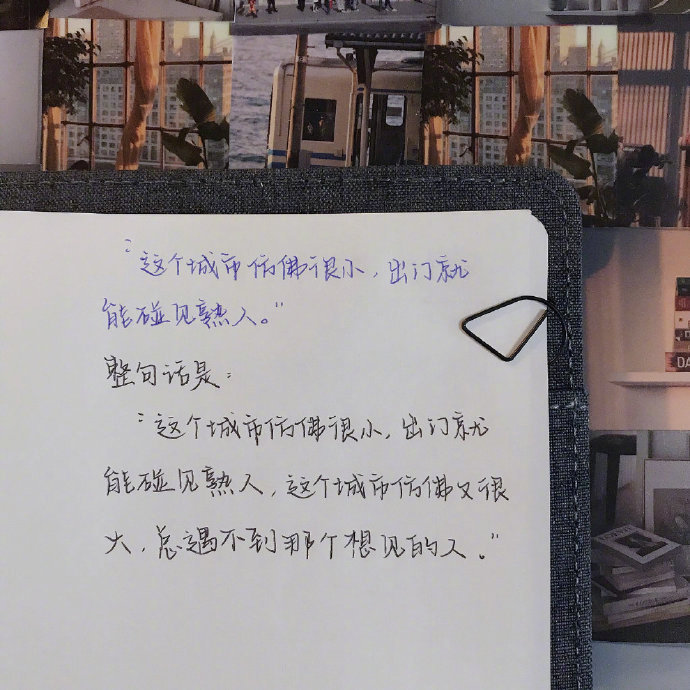 “这个城市仿佛很小，出门就
能碰见熟人。”
整句话是：
“这个城市仿佛很小，出门就
能碰见熟人，这个城市仿佛又很
大，总遇不到那个想见的人。”
DA